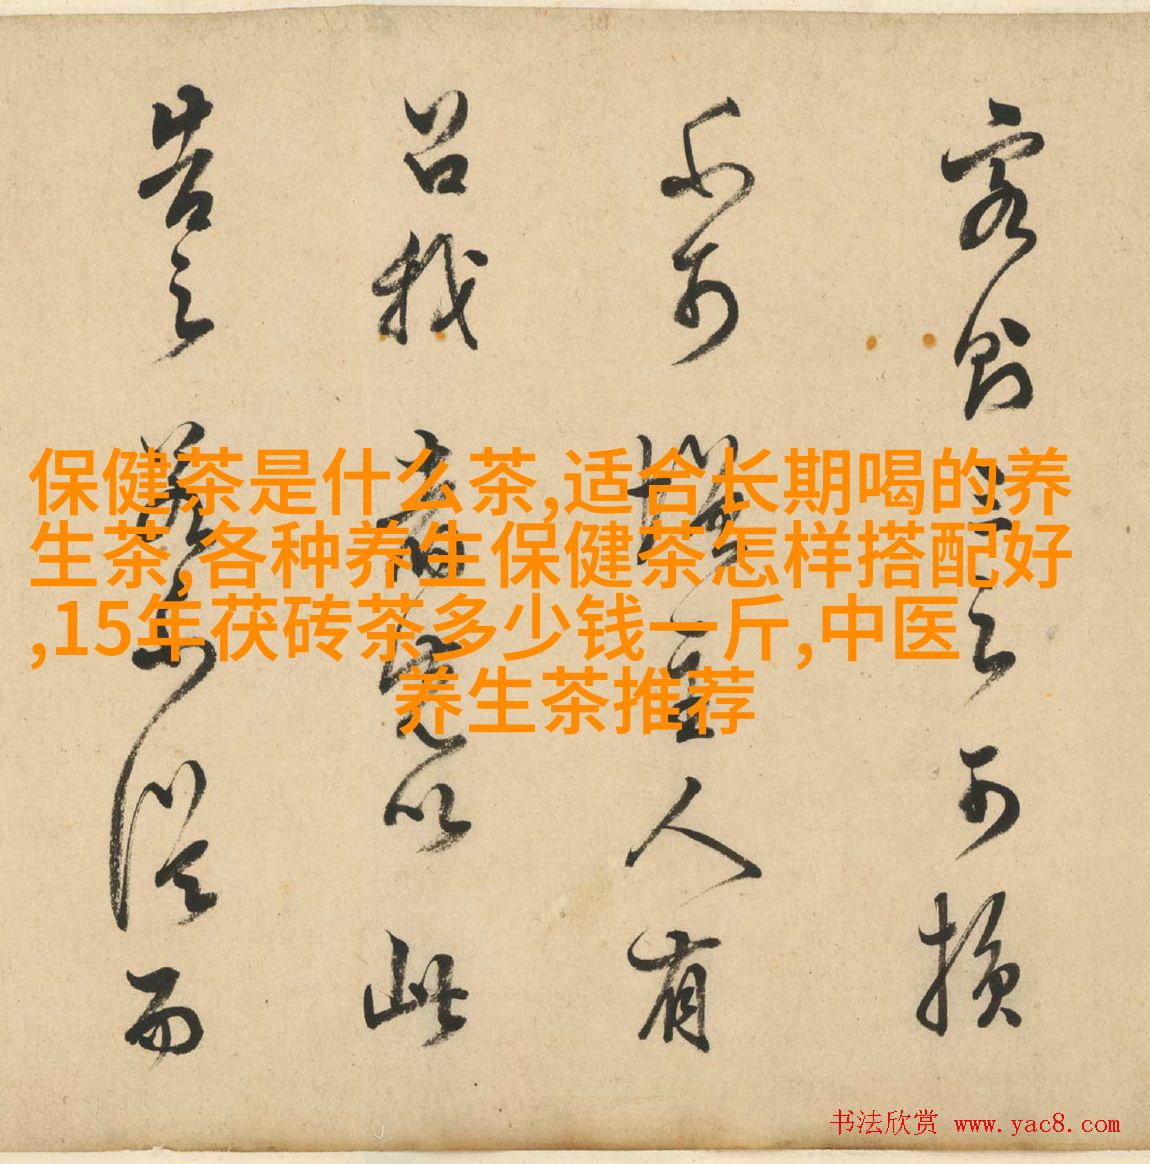 保健茶是什么茶,适合长期喝的养
生茶,各种养生保健茶怎样搭配好
,15年茯砖茶多少钱一斤,中医
养生茶推荐
之可損
主人有
召我者以此
告之從而
书法欣赏 www.yac8.com